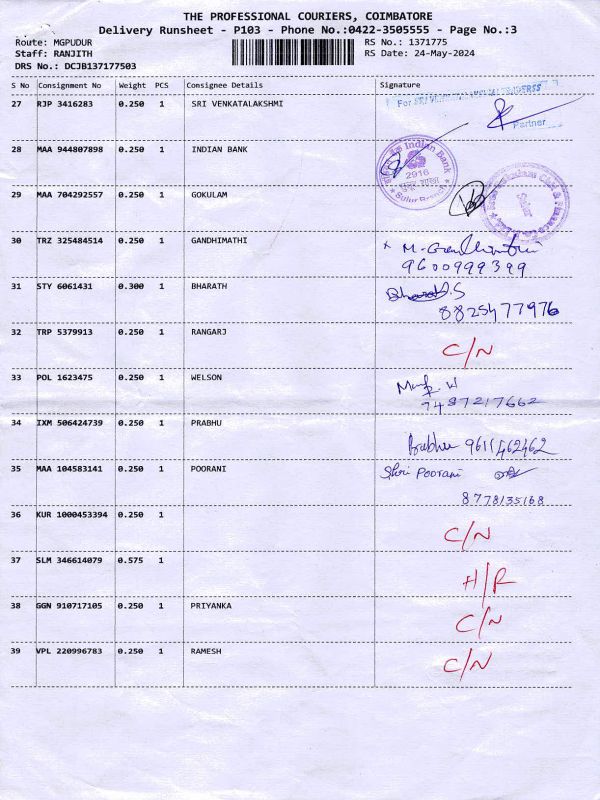 THE PROFESSIONAL COURIERS, COIMBATORE
Delivery Runsheet - P103 - Phone No.:0422-3505555 - Page No.:3
Route: MGPUDUR RS No.: 1371775
Staff: RANJITH RS Date: 24-May-2024
DRS No.: DCJB137177503
S No Consignment No Weight PCS Consignee Details Signature
27 RJP 3416283 0.250 1 SRI VENKATALAKSHMI
For
Partner
28 MAA 944807898 0.250 1 INDIAN BANK
Indian Bank
2916
Sulur Branch
29 MAA 704292557 0.250 1 GOKULAM
Sulur
30 TRZ 325484514 0.250 1 GANDHIMATHI
x M. Gandhimathi
9600999399
31 STY 6061431 0.300 1 BHARATH
Bharath.S
8825477976
32 TRP 5379913 0.250 1 RANGARJ
C/N
33 POL 1623475 0.250 1 WELSON
W
7487217662
34 IXM 506424739 0.250 1 PRABHU
Prabhu 9611462462
35 MAA 104583141 0.250 1 POORANI
Shri Poorani
8778135168
36 KUR 1000453394 0.250 1
C/N
37 SLM 346614079 0.575 1
H/R
38 GGN 910717105 0.250 1 PRIYANKA
C/N
39 VPL 220996783 0.250 1 RAMESH
C/N